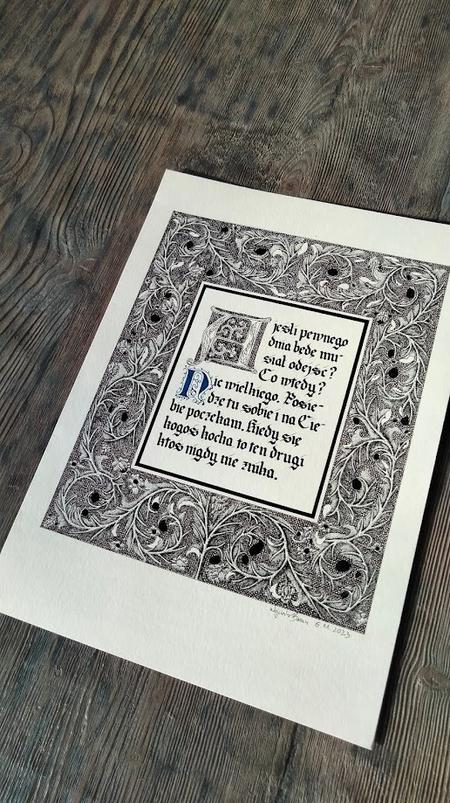 A jeśli pewnego
dnia będę mu-
siał odejść?
Co wtedy?
Nic wielkiego. Posie-
dzę tu sobie i na Cie-
bie poczekam. Kiedy się
kogoś kocha, to ten drugi
ktoś nigdy nie znika.
6.11.2023